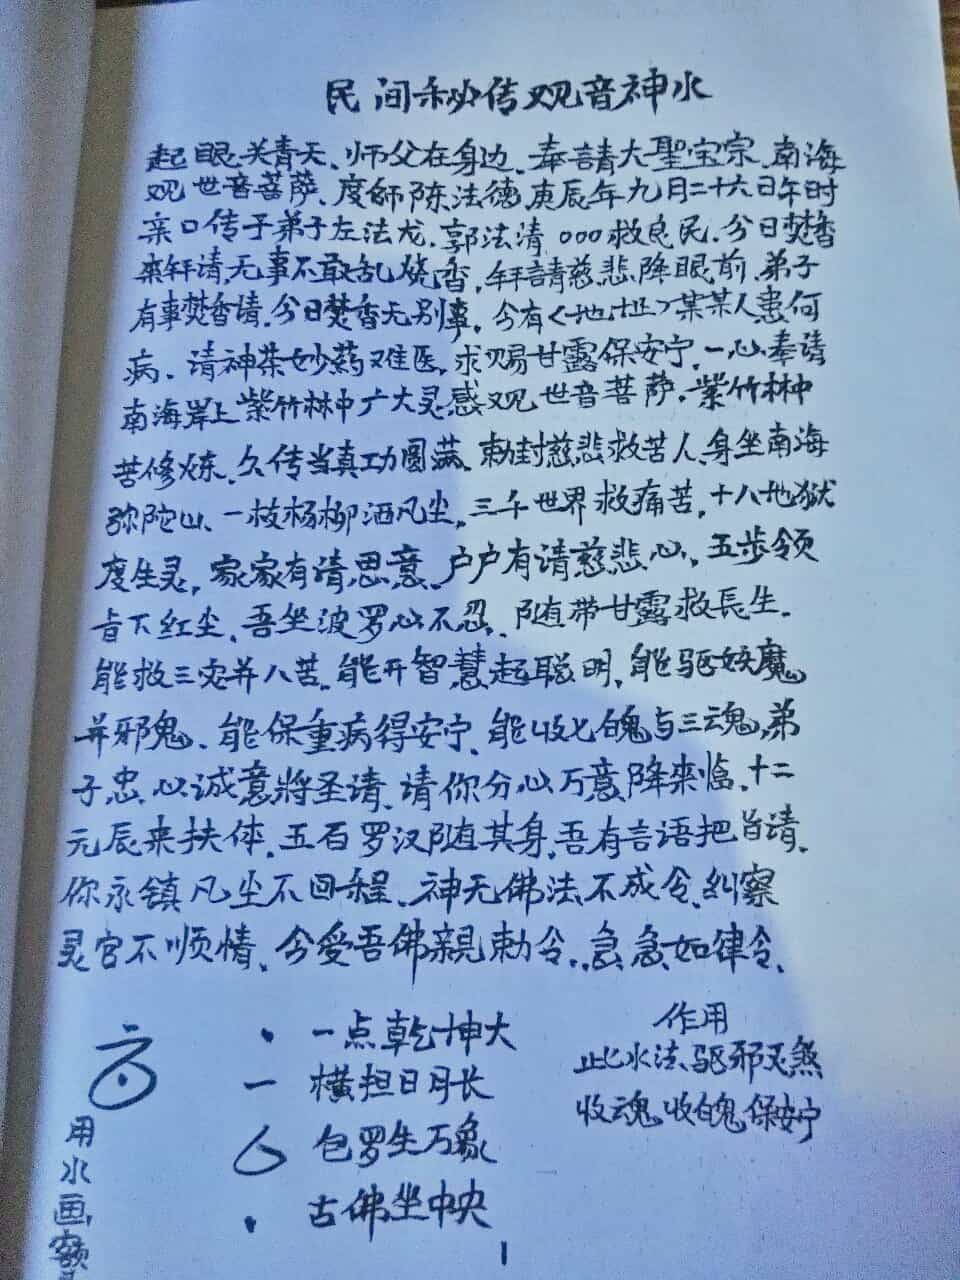 民间秘传观音神水
起眼关青天、师父在身边、奉請大聖宝宗、南海
观世音菩萨、度師陈法德、庚辰年九月二十六日午时
亲口传于弟子左法龙、郭法清 ○○○救良民、今日焚香
来拜请、无事不敢乱烧香，拜請慈悲降眼前、弟子
有事焚香请、今日焚香无别事，今有〈地址〉某某人患何
病、请神茶妙药难医，求赐甘露保安宁、一心奉请
南海岸上紫竹林中广大灵感观世音菩萨、紫竹林中
苦修炼、久传当真功圆满、勅封慈悲救苦人、身坐南海
弥陀山、一枝杨柳洒凡尘，三千世界救痛苦，十八地獄
度生灵，家家有请思意、户户有请慈悲心，五步领
旨下红尘、吾坐波罗心不忍、随带甘露救長生.
能救三灾并八苦、能开智慧起聪明，能驱妖魔
并邪鬼、能保重病得安宁、能收七魄与三魂，弟
子忠心诚意將圣请、请你分心万意降来临、十二
元辰来扶体、五百罗汉随其身、吾有言语把旨请、
你永镇凡尘不回程、神无佛法不成令、纠察
灵官不顺情、今受吾佛親勅令、急急如律令、
• 一点乾坤大
一 横担日月长
包罗生万象
• 古佛坐中央
作用
此水法、驱邪灭煞
收魂、收魄、保安宁
用水画额
1